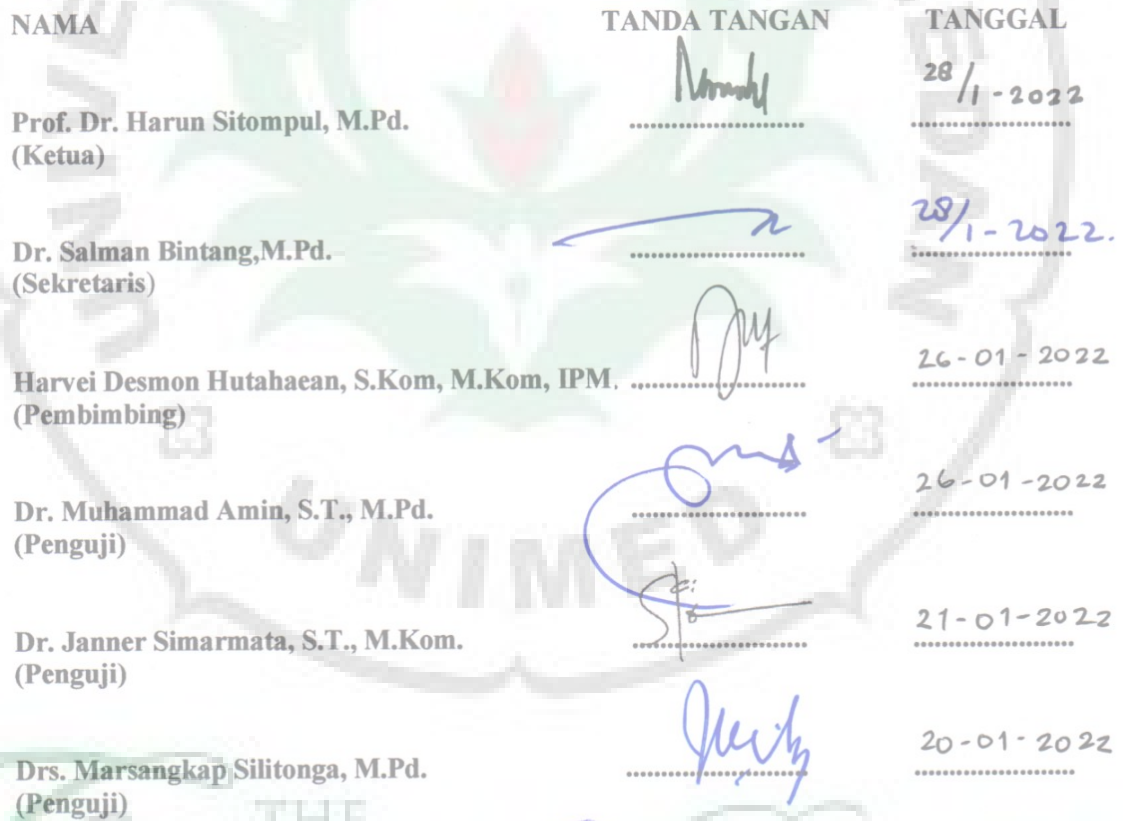 NAMA TANDA TANGAN TANGGAL
28/1-2022
Prof. Dr. Harun Sitompul, M.Pd. ........................ ........................
(Ketua)
28/1-2022.
Dr. Salman Bintang,M.Pd. ........................ ........................
(Sekretaris)
26-01-2022
Harvei Desmon Hutahaean, S.Kom, M.Kom, IPM. ........................ ........................
(Pembimbing)
26-01-2022
Dr. Muhammad Amin, S.T., M.Pd. ........................ ........................
(Penguji)
21-01-2022
Dr. Janner Simarmata, S.T., M.Kom. ........................ ........................
(Penguji)
20-01-2022
Drs. Marsangkap Silitonga, M.Pd. ........................ ........................
(Penguji)
UNIMED
THE